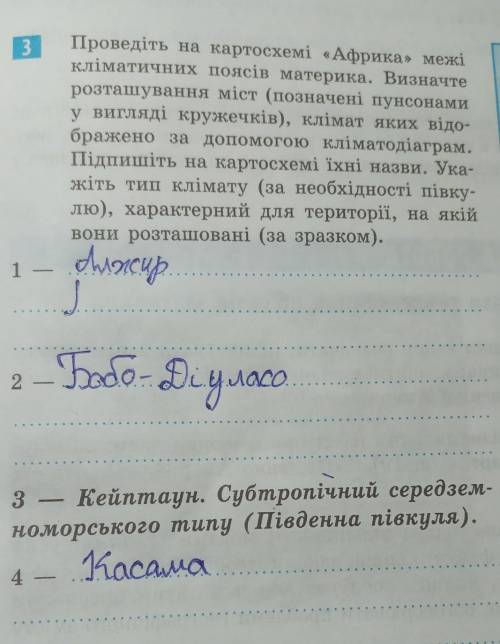 3
Проведіть на картосхемі «Африка» межі
кліматичних поясів материка. Визначте
розташування міст (позначені пунсонами
у вигляді кружечків), клімат яких відо-
бражено за допомогою кліматодіаграм.
Підпишіть на картосхемі їхні назви. Ука-
жіть тип клімату (за необхідності півку-
лю), характерний для території, на якій
вони розташовані (за зразком).
1 — Алжир
2 — Бобо-Діуласо
3 — Кейптаун. Субтропічний середзем-
номорського типу (Південна півкуля).
4 — Касама